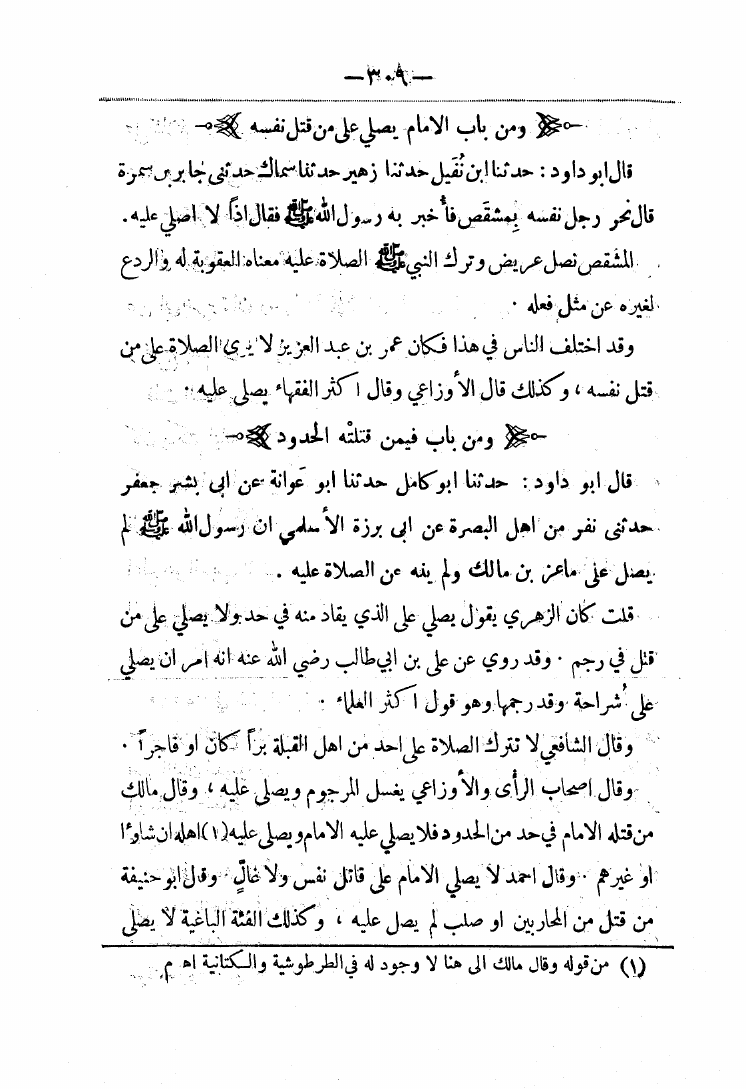 —٣٠٩—
ومن باب الامام يصلي على من قتل نفسه
قال ابو داود: حدثنا ابن نُفَيل حدثنا زهير حدثنا سماك حدثنى جابر بن سمرة
قال نحر رجل نفسه بِمشقَص فأُخبر به رسول الله ﷺ فقال اذاً لا اصلي عليه.
المشقص نصل عريض وترك النبي ﷺ الصلاة عليه معناه العقوبة له والردع
لغيره عن مثل فعله.
وقد اختلف الناس في هذا فكان عمر بن عبد العزيز لا يرى الصلاة على من
قتل نفسه، وكذلك قال الأوزاعي وقال اكثر الفقهاء يصلى عليه.
ومن باب فيمن قتلتْه الحدود
قال ابو داود: حدثنا ابو كامل حدثنا ابو عَوانة عن ابى بشر جعفر
حدثنى نفر من اهل البصرة عن ابى برزة الأسلمي ان رسول الله ﷺ لم
يصل على ماعز بن مالك ولم ينه عن الصلاة عليه.
قلت كان الزهري يقول يصلي على الذي يقاد منه في حد ولا يصلي على من
قتل في رجم. وقد روي عن على بن ابي طالب رضي الله عنه انه امر ان يصلي
على شُراحة وقد رجمها وهو قول اكثر العلماء.
وقال الشافعي لا تترك الصلاة على احد من اهل القبلة براً كان او فاجراً.
وقال اصحاب الرأى والأوزاعي يغسل المرجوم ويصلى عليه، وقال مالك
من قتله الامام في حد من الحدود فلا يصلي عليه الامام ويصلي عليه (١) اهله ان شاؤا
او غيرهم. وقال احمد لا يصلي الامام على قاتل نفس ولا غالٍّ. وقال ابو حنيفة
من قتل من المحاربين او صلب لم يصل عليه، وكذلك الفئة الباغية لا يصلى
(١) من قوله وقال مالك الى هنا لا وجود له في الطرطوشية والكتانية اه م